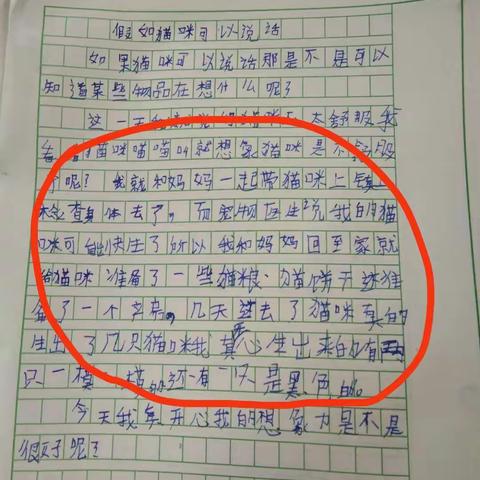 假如猫咪可以说话
如果猫咪可以说话那是不是可以
知道某些物品在想什么呢？
这一天我 说 猫咪 不舒服我
看 猫咪喵喵叫就想象猫咪是不舒服
个呢？我就和妈妈一起带猫咪上镇上
检查身体去了，而宠物医生说我的猫
咪可能快生了所以我和妈妈回到家就
给猫咪准备了一些猫粮、猫饼干还准
备了一个 房，几天过去了猫咪真的
生出了几只猫咪我真心生出来的有两
只一模一样的还有一只是黑色的。
今天我真开心我的想象力是不是
很好呢？